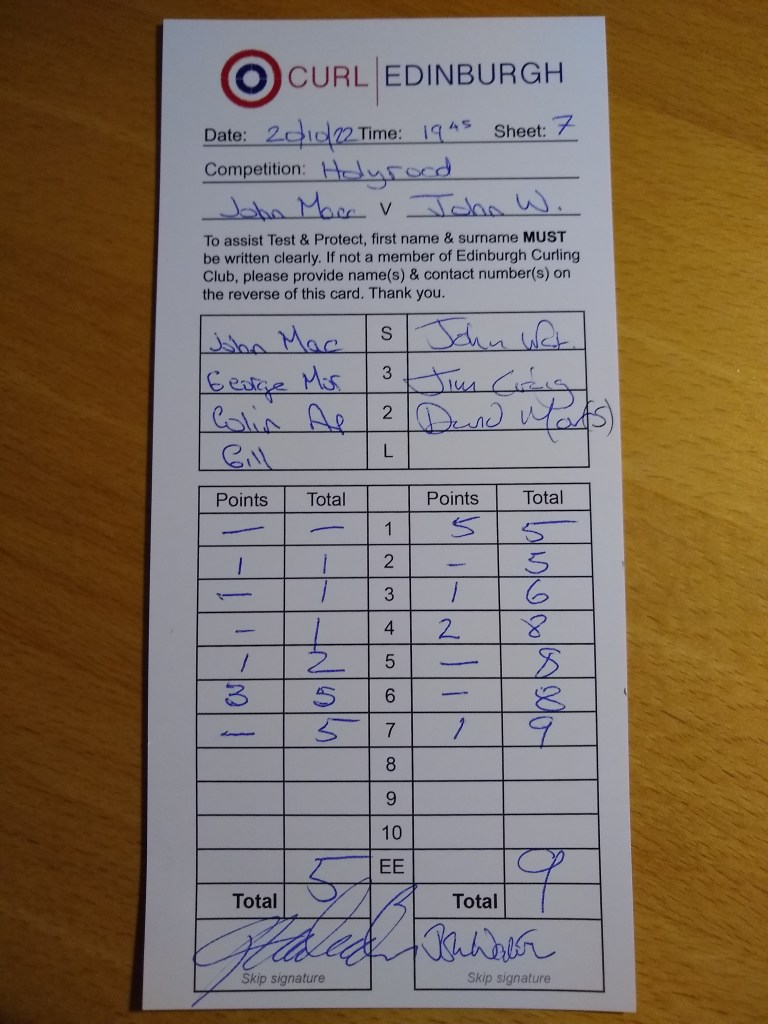 CURL | EDINBURGH
Date: 20/10/22 Time: 19 45 Sheet: 7
Competition: Holyrood
John Macc v John W.
To assist Test & Protect, first name & surname MUST
be written clearly. If not a member of Edinburgh Curling
Club, please provide name(s) & contact number(s) on
the reverse of this card. Thank you.
John Mac S John Wat.
George 3 Jim Craig
Colin 2 David
Gill L
Points Total Points Total
— — 1 5 5
1 1 2 – 5
— 1 3 1 6
– 1 4 2 8
1 2 5 — 8
3 5 6 – 8
— 5 7 1 9
8
9
10
5 EE 9
Total Total
Skip signature Skip signature